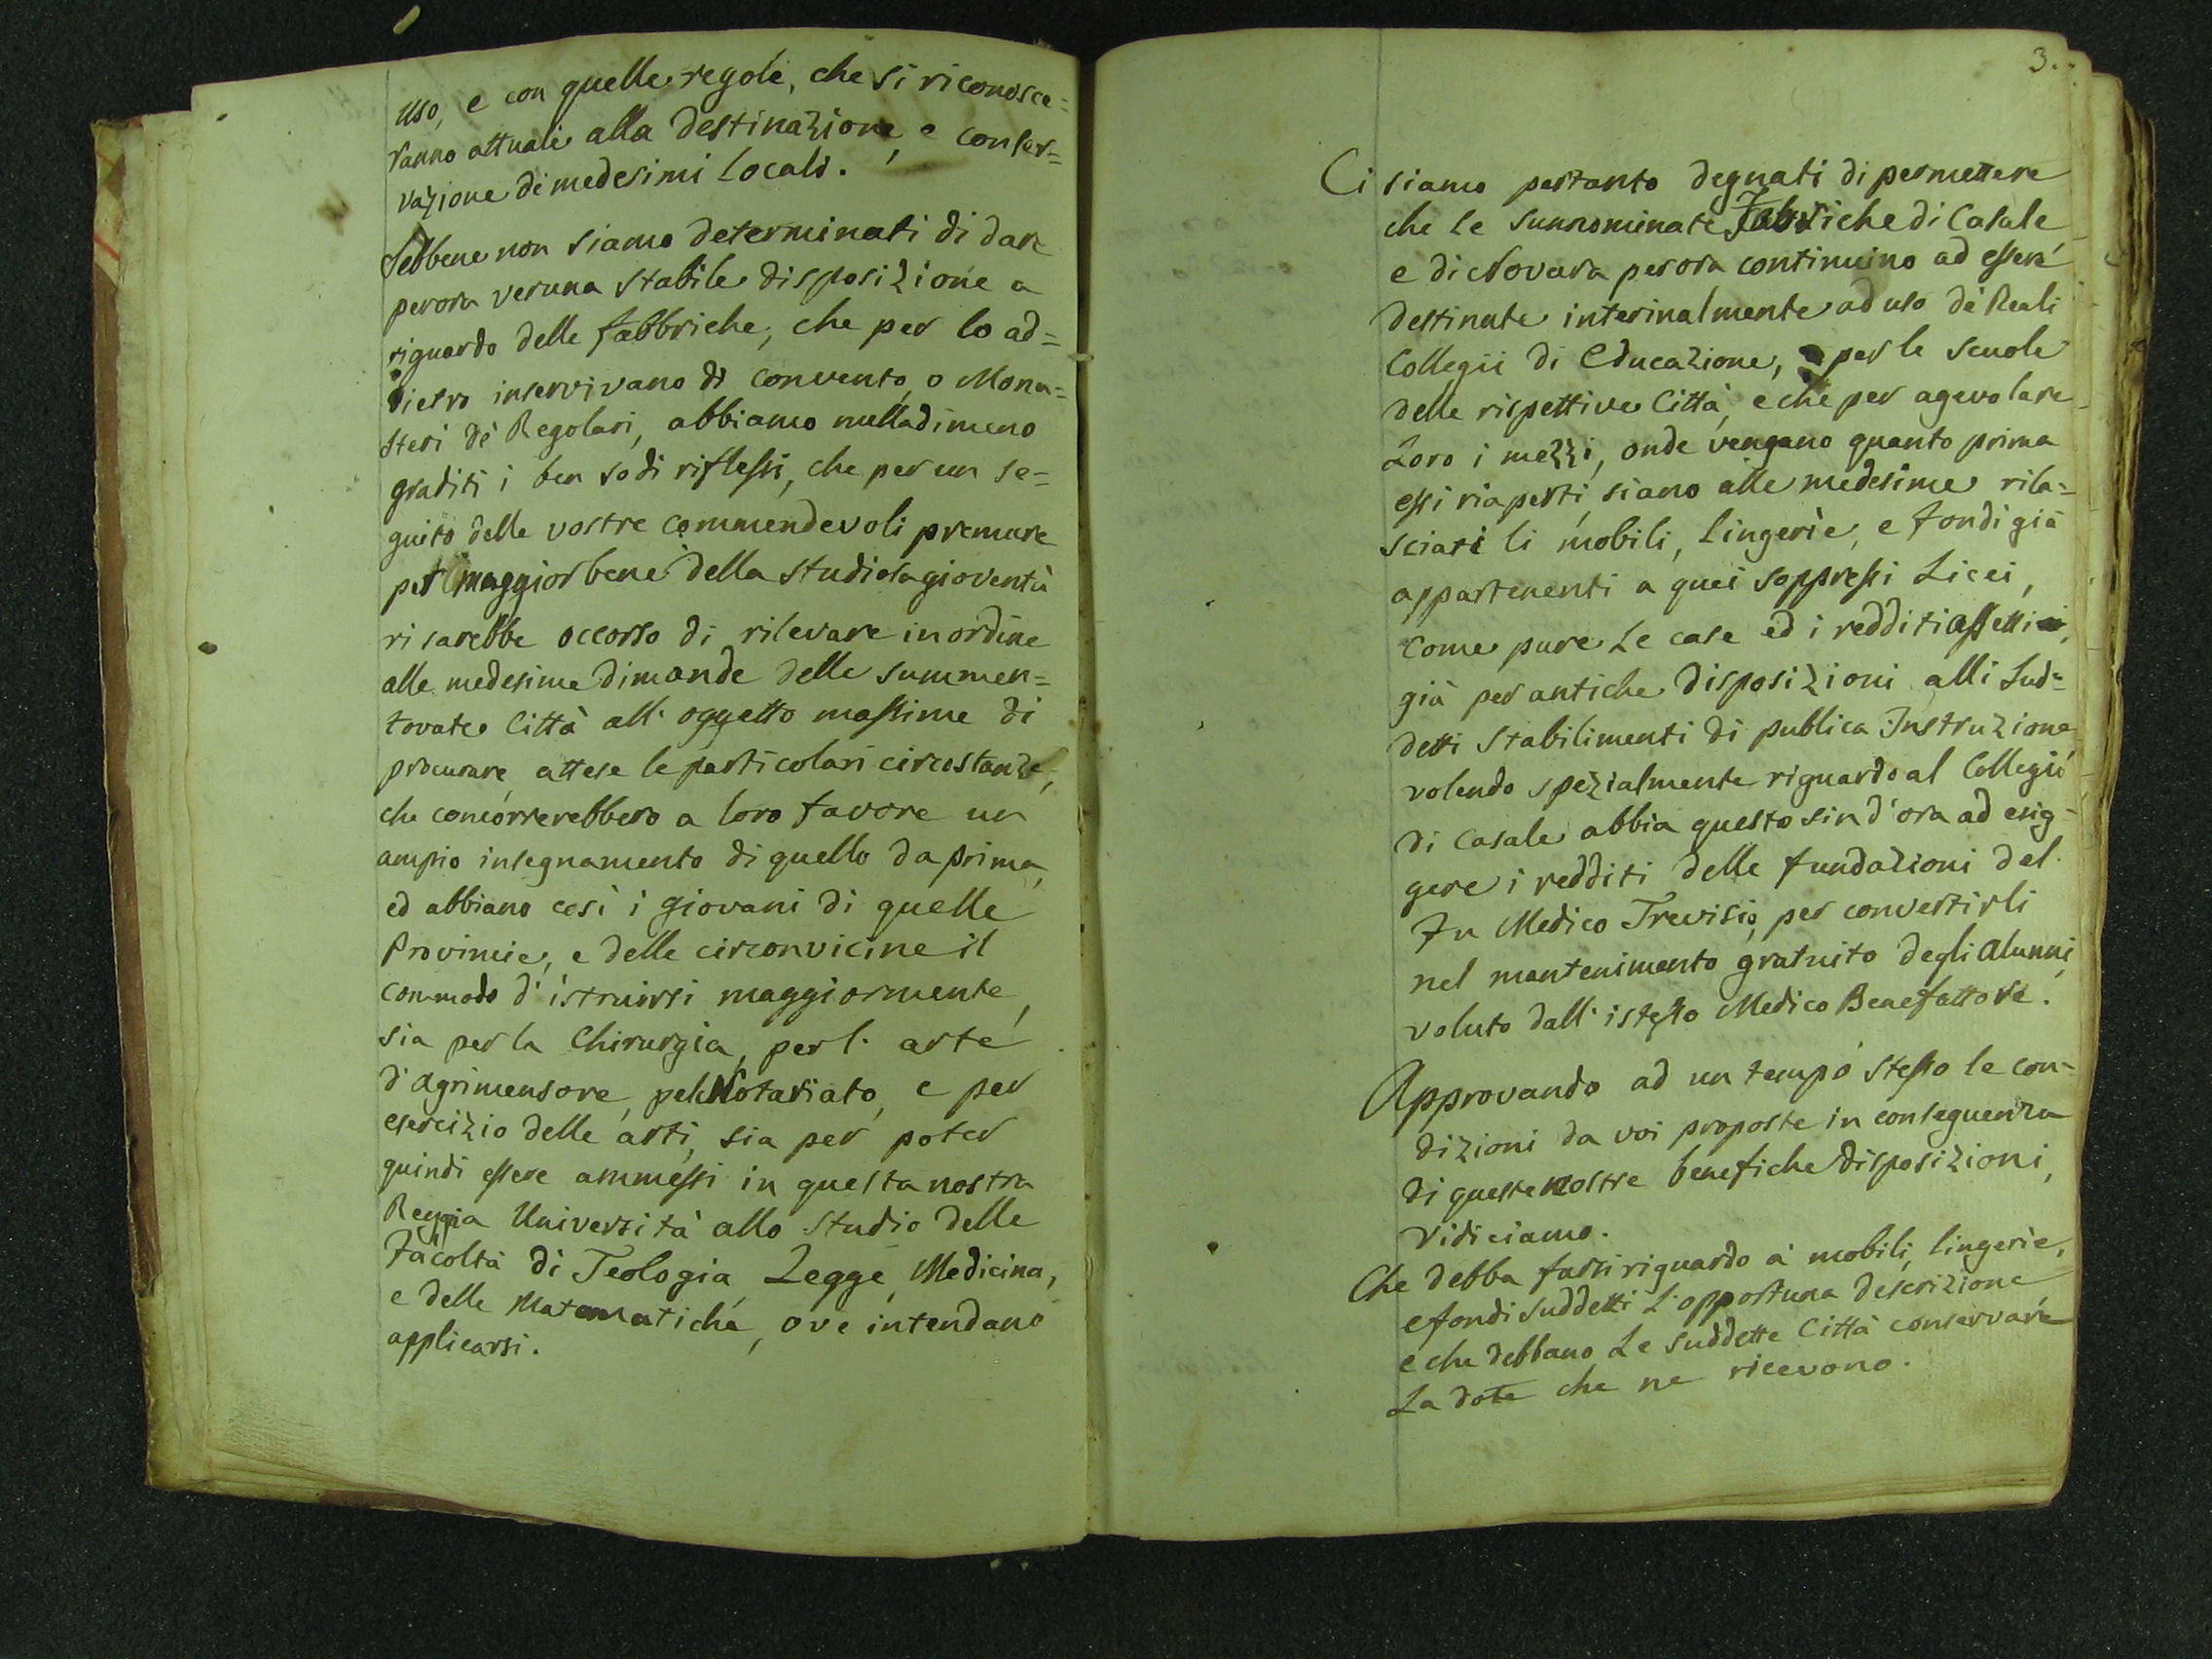 uso, e con quelle regole, che si riconosce=
ranno attuali alla destinazione, e conser=
vazione dè medesimi locali.
Sebbene non siamo determinati di dare
perora veruna stabile disposizione a
riguardo delle fabbriche, che per lo ad=
dietro inservivano di convento, o Mona=
steri dè Regolari, abbiamo nulladimeno
graditi i ben sodi riflessi, che per un se=
guito delle vostre commendevoli premure
pel maggior bene della studiosa gioventù
vi sarebbe occorso di rilevare in ordine
alle medesime dimande delle summen=
tovate Città all' oggetto massime di
procurare, attese le particolari circostanze,
che concorrerebbero a loro favore un
ampio insegnamento di quello da prima,
ed abbiano così i giovani di quelle
Provincie, e delle circonvicine il
commodo d' istruirsi maggiormente,
sia per la Chirurgia, per l' arte
d' Agrimensore, pel Notariato, e per
esercizio delle arti, sia per poter
quindi essere ammessi in questa nostra
Reggia Università allo Studio delle
Facoltà di Teologia, Legge, Medicina,
e delle Matematiche, ove intendano
applicarsi.
3.
Ci siamo pertanto degnati di permettere
che le sunnominate Fabbriche di Casale
e di Novara perora continuino ad essere
destinate interinalmente ad uso dè Reali
Collegii di Educazione, per le scuole
delle rispettive Città, e che per agevolare
Loro i mezzi, onde vengano quanto prima
essi riaperti, siano alle medesime rila=
sciati li mobili, lingerìe, e fondi già
appartenenti a quei soppressi Licei,
come pure Le case ed i redditi affetti
già per antiche disposizioni alli Sud=
detti Stabilimenti di publica Instruzione
volendo spezialmente riguardo al Collegio
di Casale abbia questo sin d' ora ad esig=
gere i redditi delle fundazioni del
Fu Medico Trevisio, per convertirli
nel mantenimento gratuito degli Alunni,
voluto dall' istesso Medico Benefattore.
Approvando ad un tempo stesso le con=
dizioni da voi proposte in conseguenza
di queste nostre benefiche disposizioni,
vi diciamo.
Che debba farsi riguardo à mobili, lingerìe,
e fondi suddetti L' opportuna descrizione
e che debbano Le suddette Città conservare
La dote che ne ricevono.